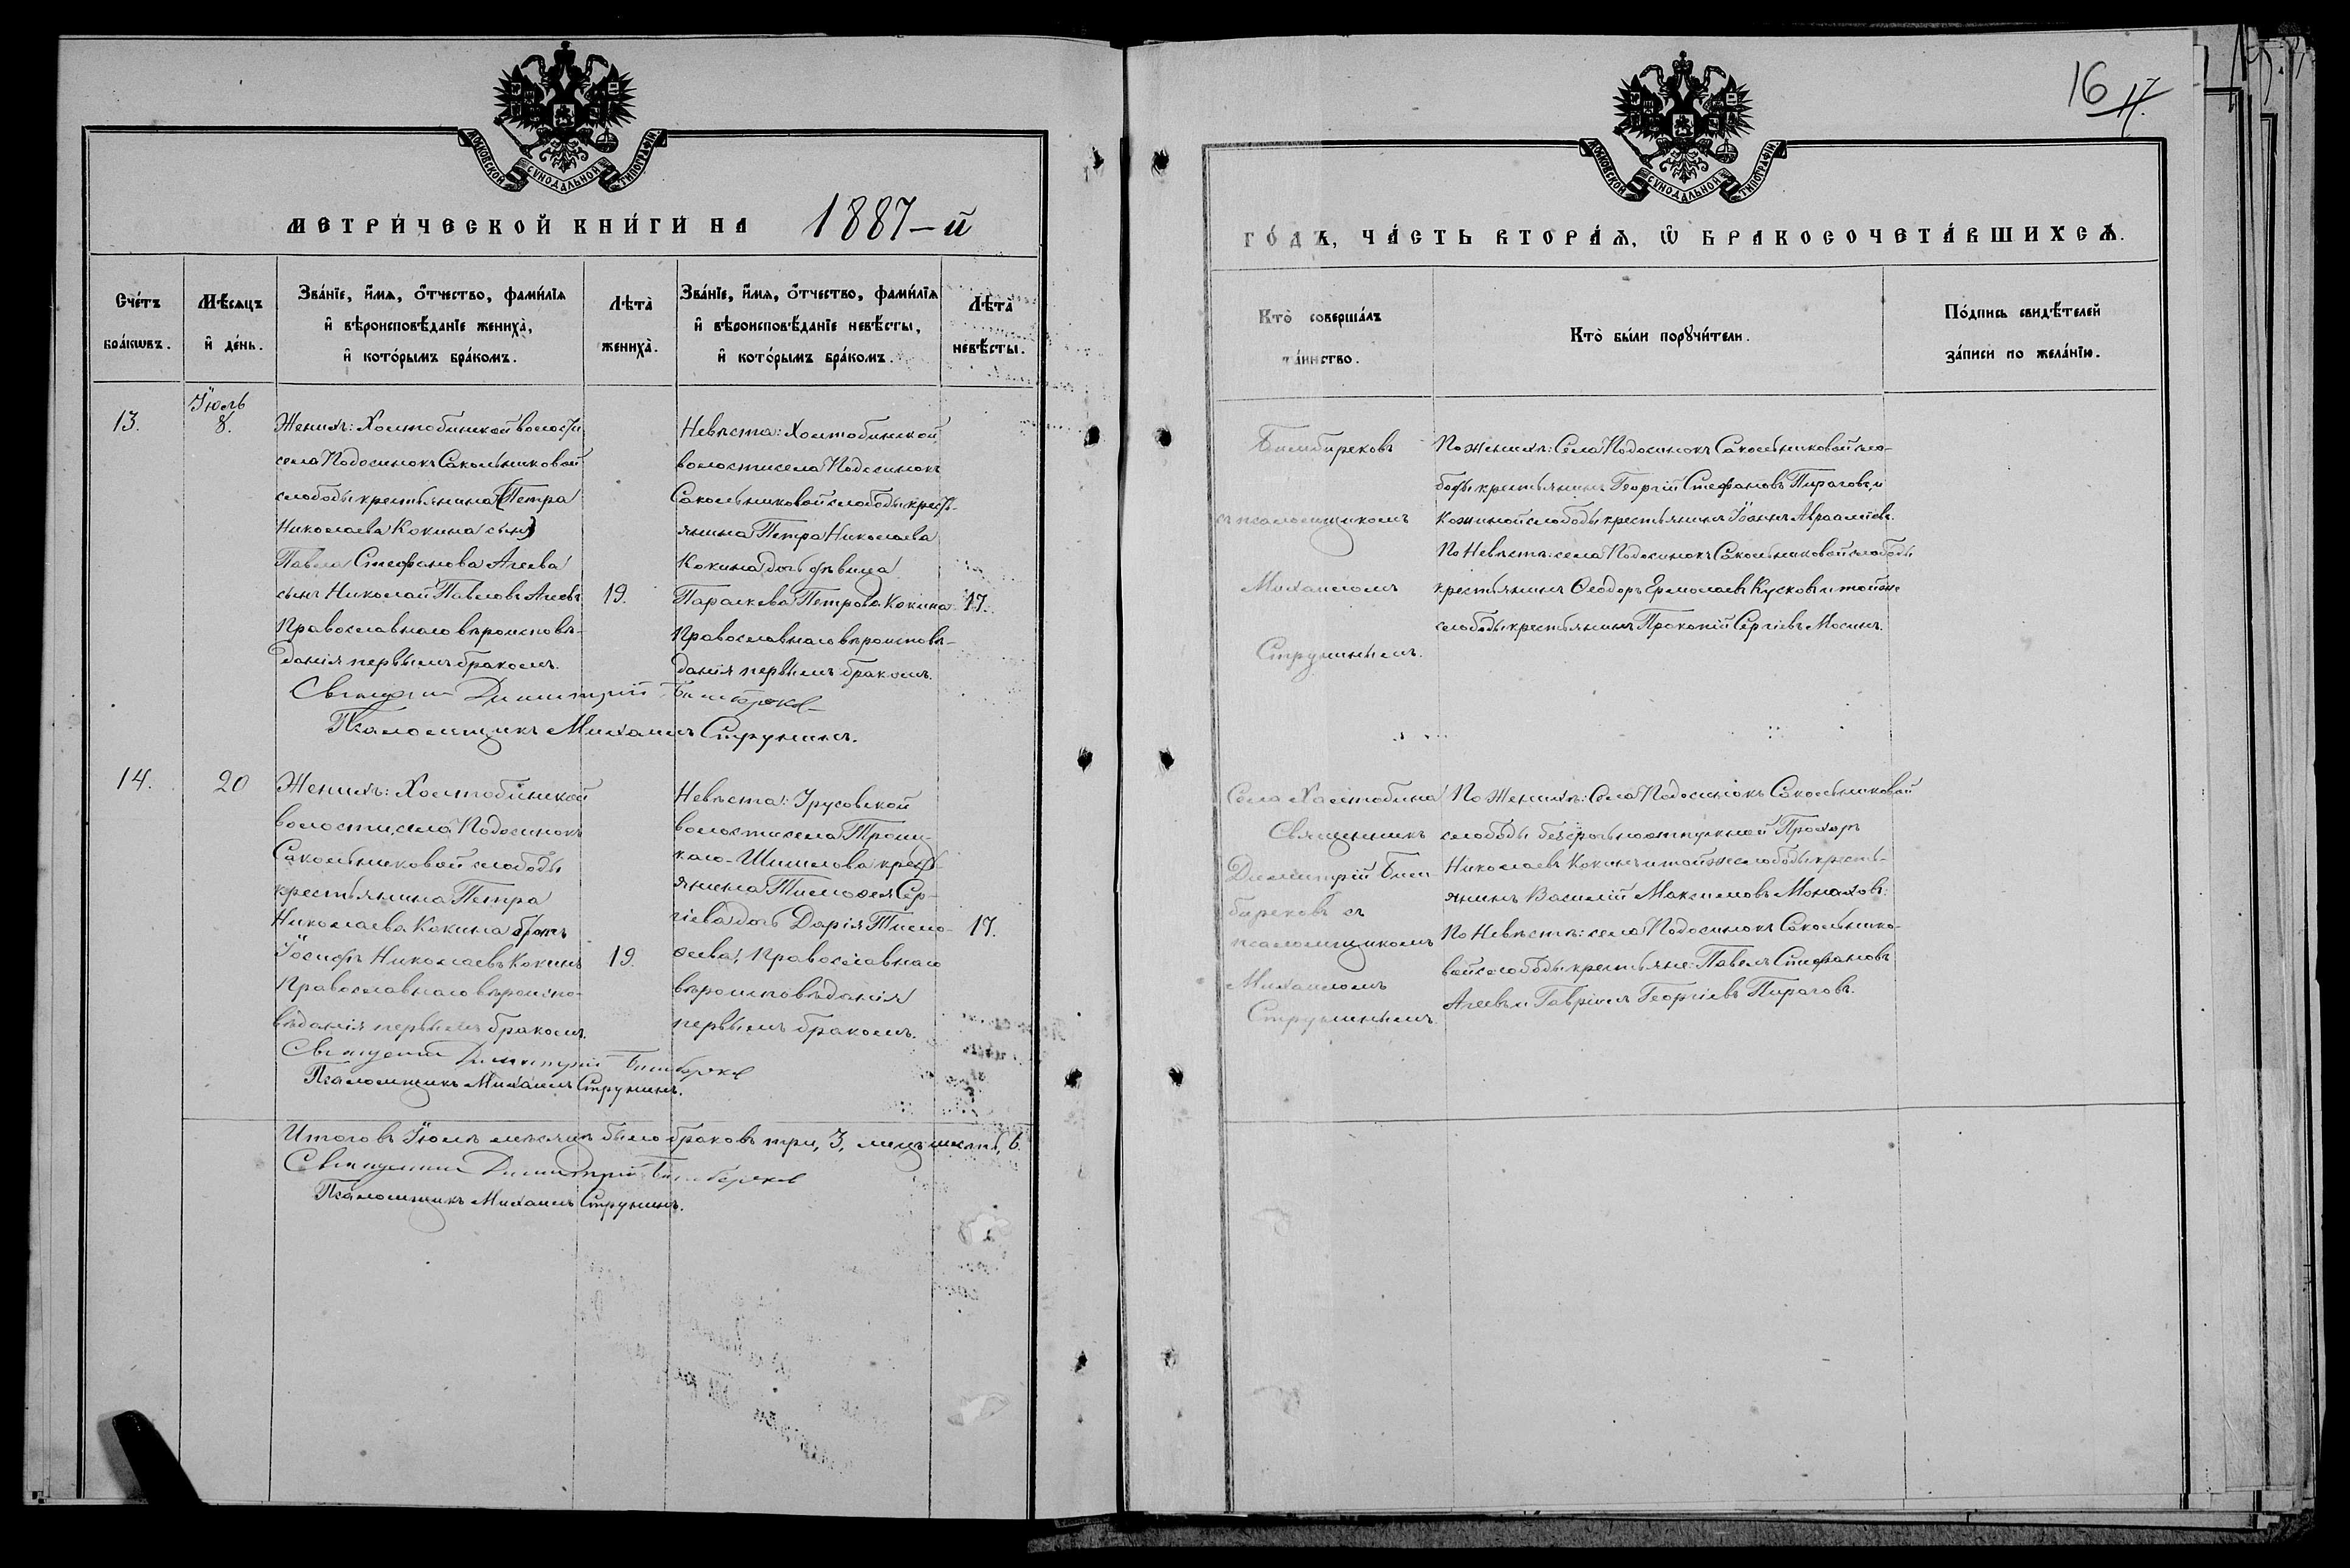 МОСКОВСКОЙ СѴНОДАЛЬНОЙ ТИПОГРАФІИ
МЕТРИ́ЧЕСКОЙ КНИ́ГИ НА 1887-й
Сче́тъ бра́кωвъ.
Мѣ́сяцъ и҆ де́нь.
Зва́нїе, и҆́мѧ, ѻ҆́тчество, фами́лїѧ
и҆ вѣроисповѣ́данїе жениха̀,
и҆ кото́рымъ бра́комъ.
Лѣта̀ жениха̀.
Зва́нїе, и҆́мѧ, ѻ҆́тчество, фами́лїѧ
и҆ вѣроисповѣ́данїе невѣ́сты,
и҆ кото́рымъ бра́комъ.
Лѣта̀ невѣ́сты.
13.
Іюль
8.
Женихъ: Холтобинской волости
села Подосинокъ Сокольниковой
слободы крестьянина (Петра
Николаева Кокина сынъ)
Павла Стефанова Агеева
сынъ Николай Павловъ Агеевъ
Православнаго вѣроисповѣ-
данія первымъ бракомъ.
19.
Невѣста: Холтобинской
волости села Подосинокъ
Сокольниковой слободы кресть-
янина Петра Николаева
Кокина дочь дѣвица
Параскева Петрова Кокина
Православнаго вѣроисповѣ-
данія первымъ бракомъ.
17.
Священникъ Димитрій Бимбирековъ
Псаломщикъ Михаилъ Струнинъ.
14.
20
Женихъ: Холтобинской
волости, села Подосинокъ
Сокольниковой слободы
крестьянина Петра
Николаева Кокина братъ
Іосифъ Николаевъ Кокинъ
Православнаго вѣроиспо-
вѣданія первымъ бракомъ.
19.
Невѣста: Урусовской
волости села Троиц-
каго-Шишлова кресть-
янина Тимоѳея Сер-
гіева дочь Дарія Тимо-
ѳеева, Православнаго
вѣроисповѣданія
первымъ бракомъ.
17.
Священникъ Димитрій Бимбирековъ
Псаломщикъ Михаилъ Струнинъ.
Итого въ Іюлѣ мѣсяцѣ было браковъ три, 3, лицъ шесть, 6.
Священникъ Димитрій Бимбирековъ
Псаломщикъ Михаилъ Струнинъ.
16
17.
МОСКОВСКОЙ СѴНОДАЛЬНОЙ ТИПОГРАФІИ
ГО́ДЪ, ЧА́СТЬ ВТОРА́Ѧ, Ѽ БРАКОСОЧЕТА́ВШИХСѦ.
Кто̀ соверша́лъ
та́инство.
Кто̀ бы́ли порꙋчи́тели.
По́дпись свидѣ́телей
за́писи по жела́нїю.
Бимбирековъ
съ псаломщикомъ
Михаиломъ
Струнинымъ.
По женихѣ: Села Подосинокъ Сокольниковой сло-
боды крестьянинъ Георгій Стефановъ Пироговъ, и
Кожиной слободы крестьянинъ Іоаннъ Авраамiевъ.
По Невѣстѣ: села Подосинокъ Сокольниковой слободы
крестьянинъ Ѳеодоръ Ермолаевъ Кусковъ и той же
слободы крестьянинъ Прокопій Сергіевъ Мосинъ.
Села Холтобина
Священникъ
Димитрій Бим-
бирековъ съ
псаломщикомъ
Михаиломъ
Струнинымъ.
По Женихѣ: Села Подосинокъ Сокольниковой
слободы безсрочноотпускной Прохоръ
Николаевъ Кокинъ и той же слободы кресть-
янинъ Василій Максимовъ Монаховъ:
По Невѣстѣ: села Подосинокъ Сокольнико-
вой слободы крестьяне: Павелъ Стефановъ
Агеевъ и Гавріилъ Георгіевъ Пироговъ.